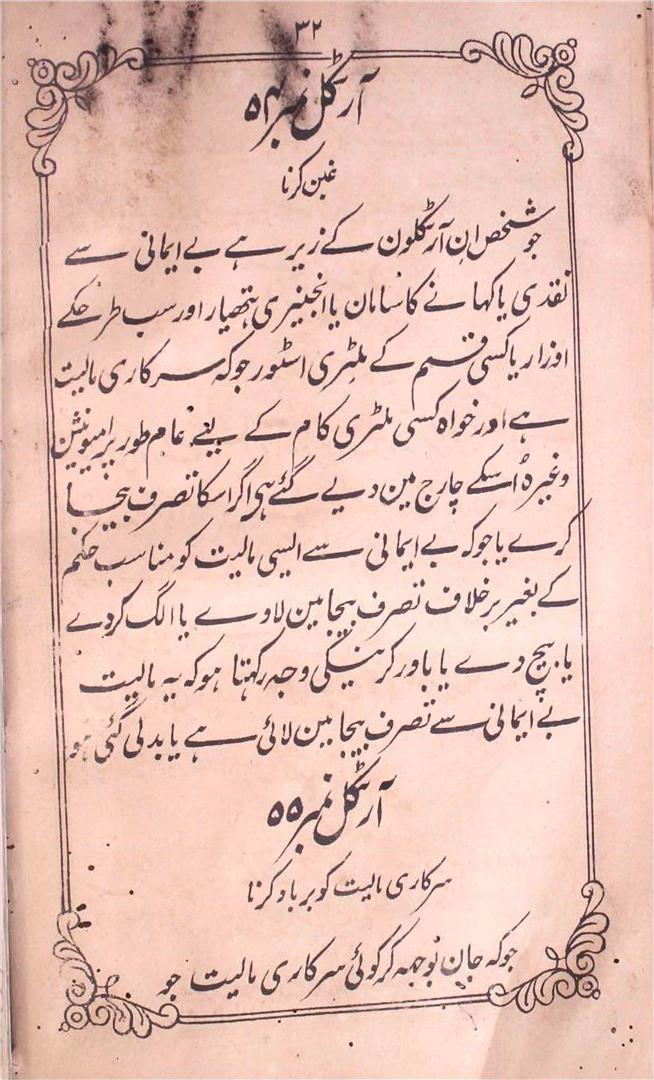 ۳۲
آرٹکل نمبر ۵۴
غبن کرنا
جو شخص ان آرٹکلون کے زیر ہے بے ایمانی سے
نقدی یا کہانے کا سامان یا انجینیری ہتھیار اور سب طرحکے
اوزار یا کسی قسم کے ملٹری اسٹور جو کہ سرکاری مالیت
ہے اور خواہ کسی ملٹری کام کے لیئے عام طور پر امیونیشن
وغیرہ اُسکے چارج مین دیے گئے ہی اگر اسکا تصرف بیجا
کرے یا جو کہ بے ایمانی سے ایسی مالیت کو مناسب حکم
کے بغیر برخلاف تصرف بیجا مین لاوے یا الگ کر دے
یا بیچ دے یا باور کرنیکی وجہ رکہتا ہو کہ یہ مالیت
بے ایمانی سے تصرف بیجا مین لائی ہے یا بدلی گئی ہو
آرٹکل نمبر ۵۵
سرکاری مالیت کو برباد کرنا
جو کہ جان بوجہہ کر کوئی سرکاری مالیت جو